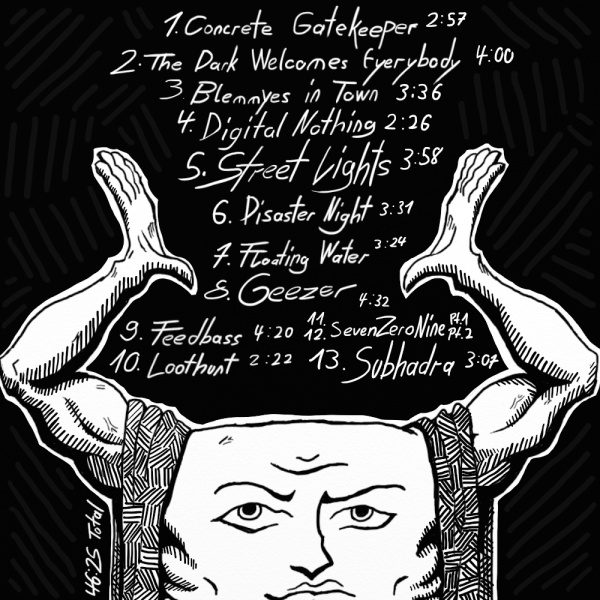 1. Concrete Gatekeeper 2:57
2. The Dark Welcomes Everybody 4:00
3. Blemmyes in Town 3:36
4. Digital Nothing 2:26
5. Street Lights 3:58
6. Disaster Night 3:31
7. Floating Water 3:24
8. Geezer 4:32
9. Feedbass 4:20
10. Loothunt 2:22
11. 12. SevenZeroNine Pt.1 Pt.2
13. Subhadra 3:07
46:25 Total